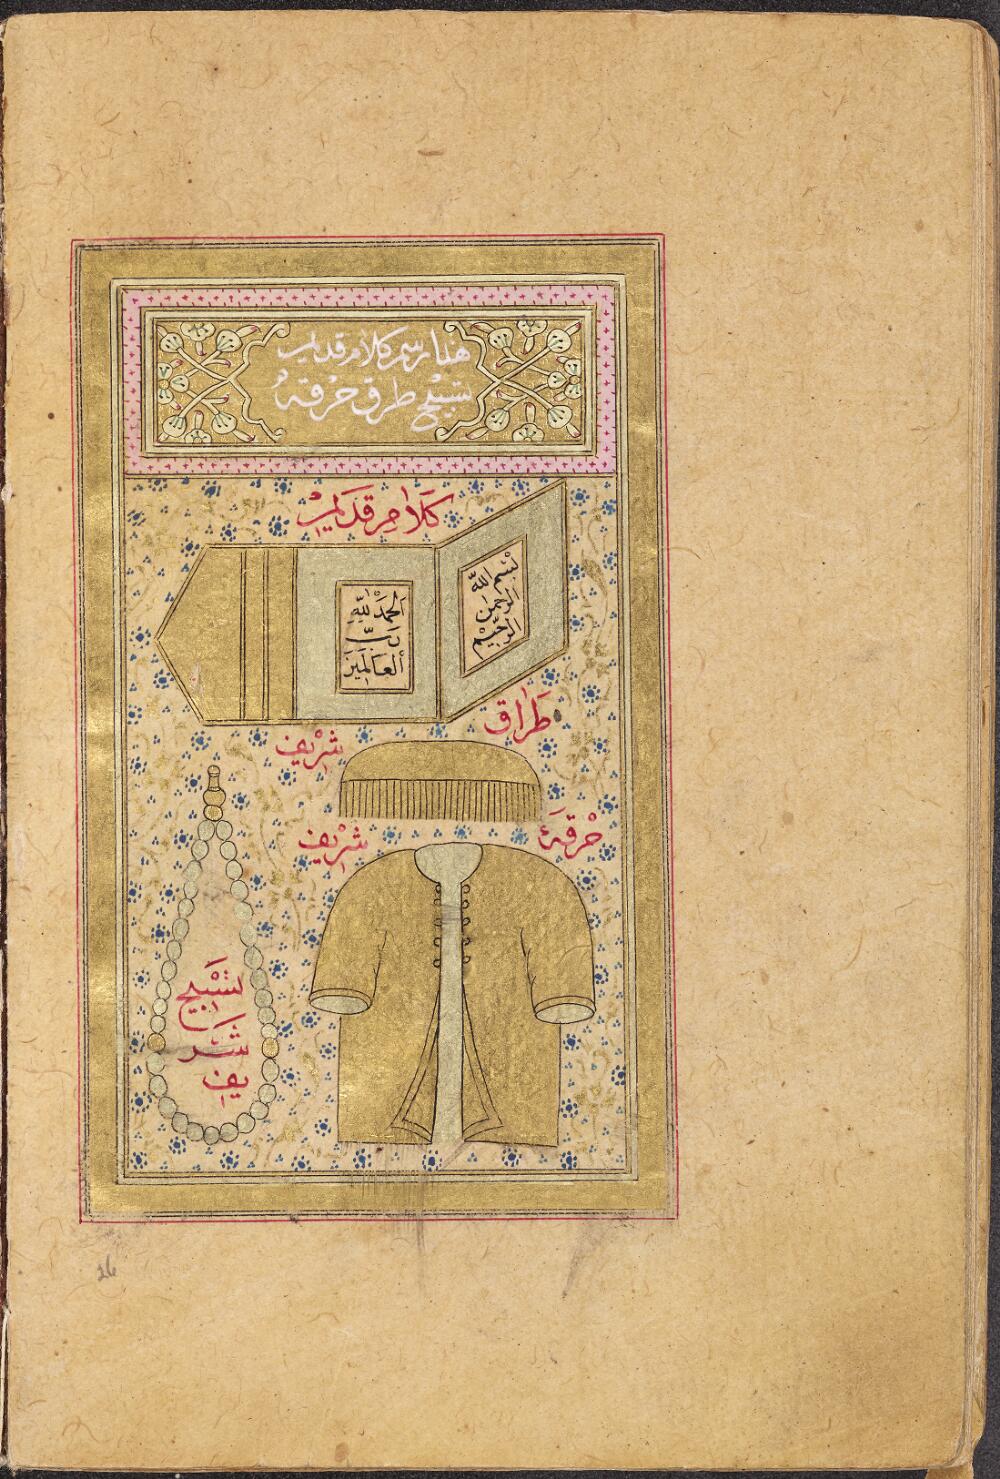 هذا رسم كلام قديم
تسبيح طرق خرقهٔ
كَلاٰم قَديم
بسْم الله
الرحمن
الرّحيْم
الحمدْ لِلّٰهِ
رَبِّ
ألعَالَمين
طَراٰق
شرْيف
خرْقهٔ
شرْيف
تسْبيح
شَر
يف
26